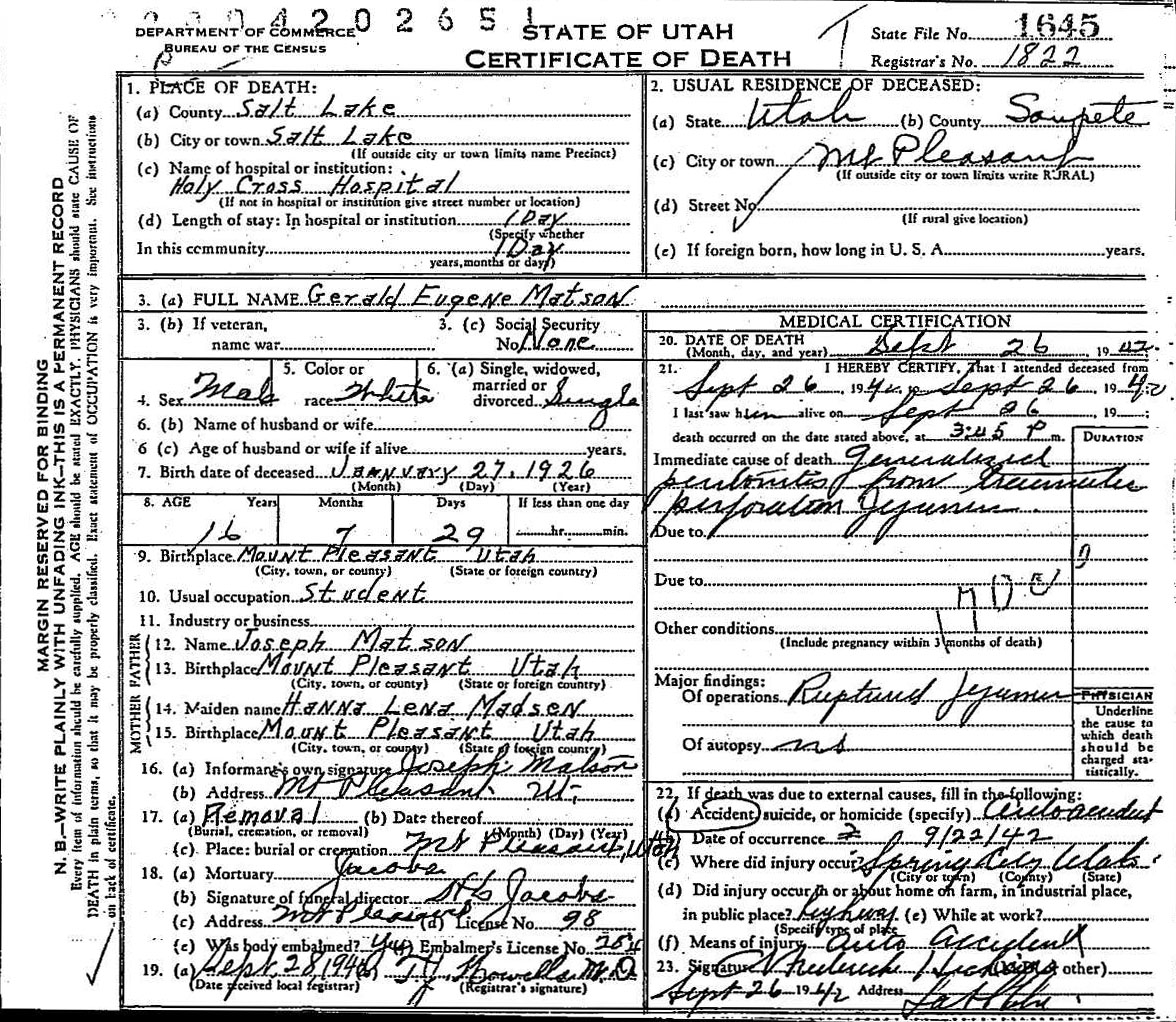 2304202651
DEPARTMENT OF COMMERCE
BUREAU OF THE CENSUS
STATE OF UTAH
CERTIFICATE OF DEATH
State File No. 1645
Registrar's No. 1822
MARGIN RESERVED FOR BINDING
N. B.—WRITE PLAINLY WITH UNFADING INK—THIS IS A PERMANENT RECORD
Every item of information should be carefully supplied. AGE should be stated EXACTLY. PHYSICIANS should state CAUSE OF
DEATH in plain terms, so that it may be properly classified. Exact statement of OCCUPATION is very important. See instructions
on back of certificate.
1. PLACE OF DEATH:
(a) County Salt Lake
(b) City or town Salt Lake
(If outside city or town limits name Precinct)
(c) Name of hospital or institution:
Holy Cross Hospital
(If not in hospital or institution give street number or location)
(d) Length of stay: In hospital or institution 1 Day
(Specify whether
In this community 1 Day
years, months or days)
2. USUAL RESIDENCE OF DECEASED:
(a) State Utah (b) County Sanpete
(c) City or town Mt Pleasant
(If outside city or town limits write RURAL)
(d) Street No.
(If rural give location)
(e) If foreign born, how long in U. S. A. years.
3. (a) FULL NAME Gerald Eugene Matson
3. (b) If veteran,
name war
3. (c) Social Security
No. None
4. Sex Male
5. Color or
race White
6. (a) Single, widowed,
married or
divorced Single
6. (b) Name of husband or wife
6 (c) Age of husband or wife if alive years.
7. Birth date of deceased January 27, 1926
(Month) (Day) (Year)
8. AGE Years Months Days If less than one day
16 7 29 hr. min.
9. Birthplace Mount Pleasant Utah
(City, town, or county) (State or foreign country)
10. Usual occupation Student
11. Industry or business
FATHER
12. Name Joseph Matson
13. Birthplace Mount Pleasant Utah
(City, town, or county) (State or foreign country)
MOTHER
14. Maiden name Hanna Lena Madsen
15. Birthplace Mount Pleasant Utah
(City, town, or county) (State or foreign country)
16. (a) Informant's own signature Joseph Matson
(b) Address Mt Pleasant Ut.
17. (a) Removal (b) Date thereof
(Burial, cremation, or removal) (Month) (Day) (Year)
(c) Place: burial or cremation Mt Pleasant, Utah
18. (a) Mortuary Jacobs
(b) Signature of funeral director Jacobs
(c) Address Mt Pleasant (d) License No. 98
(e) Was body embalmed? Yes Embalmer's License No.
19. (a) Sept. 28, 194 (b) M.D
(Date received local registrar) (Registrar's signature)
MEDICAL CERTIFICATION
20. DATE OF DEATH
(Month, day, and year) Sept 26 1942
21. I HEREBY CERTIFY, That I attended deceased from
Sept 26 1942 to Sept 26 1942
I last saw him alive on Sept 26 19
death occurred on the date stated above, at 3:45 P m.
DURATION
Immediate cause of death Generalized
peritonitis from traumatic
perforation Jejunum
Due to
Due to
Other conditions
(Include pregnancy within 3 months of death)
Major findings:
Of operations Ruptured Jejunum
Of autopsy no
PHYSICIAN
Underline
the cause to
which death
should be
charged sta-
tistically.
22. If death was due to external causes, fill in the following:
(a) Accident, suicide, or homicide (specify) Auto accident
(b) Date of occurrence 9/22/42
(c) Where did injury occur? Spring City Utah
(City or town) (County) (State)
(d) Did injury occur in or about home on farm, in industrial place,
in public place? highway (e) While at work?
(Specify type of place
(f) Means of injury Auto Accident
23. Signature Frederick other)
Sept 26 1942 Address